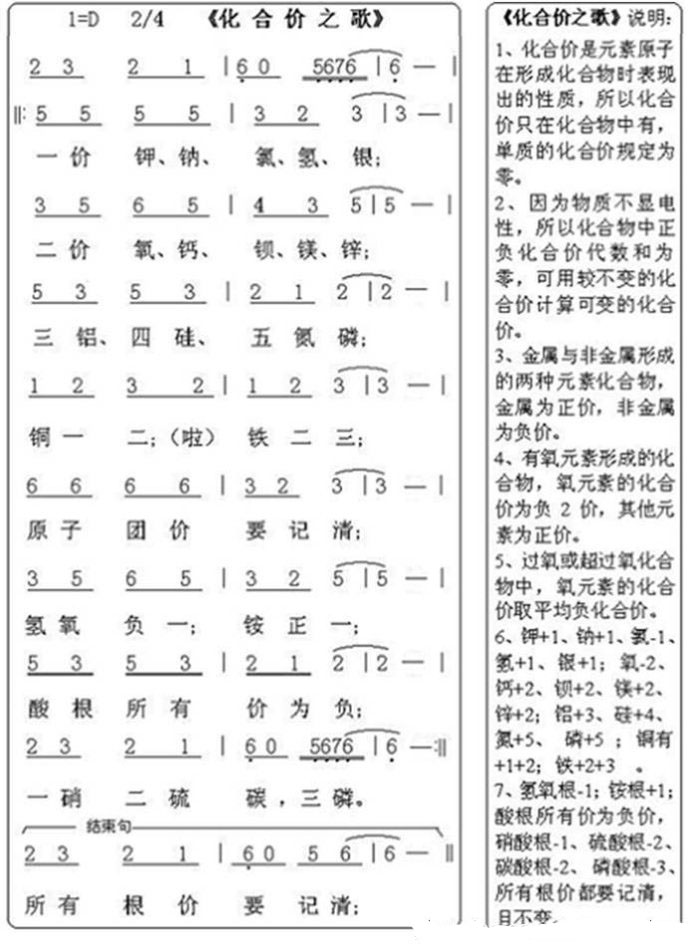 1=D 2/4 《化合价之歌》
2 3 2 1 | 6 0 5676 | 6 — |
||: 5 5 5 5 | 3 2 3 | 3 — |
一 价 钾、钠、 氯、氢、 银;
3 5 6 5 | 4 3 5 | 5 — |
二 价 氧、钙、 钡、镁、锌;
5 3 5 3 | 2 1 2 | 2 — |
三 铝、四 硅、 五 氮 磷;
1 2 3 2 | 1 2 3 | 3 — |
铜 一 二;(啦) 铁 二 三;
6 6 6 6 | 3 2 3 | 3 — |
原 子 团 价 要 记 清;
3 5 6 5 | 3 2 5 | 5 — |
氢 氧 负 一; 铵 正 一;
5 3 5 3 | 2 1 2 | 2 — |
酸 根 所 有 价 为 负;
2 3 2 1 | 6 0 5676 | 6 —:||
一 硝 二 硫 碳 ,三 磷。
结束句
2 3 2 1 | 6 0 5 6 | 6 — ||
所 有 根 价 要 记 清;
《化合价之歌》说明:
1、化合价是元素原子
在形成化合物时表现
出的性质,所以化合
价只在化合物中有,
单质的化合价规定为
零。
2、因为物质不显电
性,所以化合物中正
负化合价代数和为
零,可用较不变的化
合价计算可变的化合
价。
3、金属与非金属形成
的两种元素化合物,
金属为正价,非金属
为负价。
4、有氧元素形成的化
合物,氧元素的化合
价为负2价,其他元
素为正价。
5、过氧或超过氧化合
物中,氧元素的化合
价取平均负化合价。
6、钾+1、钠+1、氯-1、
氢+1、银+1;氧-2、
钙+2、钡+2、镁+2、
锌+2;铝+3、硅+4、
氮+5、磷+5;铜有
+1+2;铁+2+3 。
7、氢氧根-1;铵根+1;
酸根所有价为负价,
硝酸根-1、硫酸根-2、
碳酸根-2、磷酸根-3、
所有根价都要记清,
且不变。